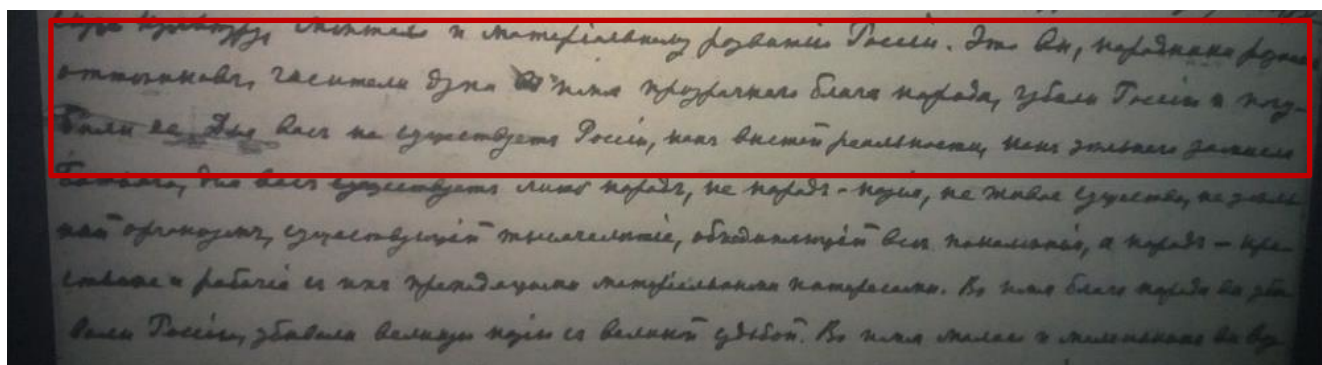 культуру, мѣшало и матеріальному развитію Россіи. Это вы, народники разныхъ
оттѣнковъ, гасители духа во имя призрачнаго блага народа, убили Россію и погу-
били ее. Для васъ не существуетъ Россіи, какъ высшей реальности, какъ замысла
Божьяго, для васъ существуетъ лишь народъ, не народъ - нація, не живое существо, не
организмъ, существующій тысячелѣтіе, объединяющій всѣ поколѣнія, а народъ - кре-
стьяне и рабочіе съ ихъ преходящими матеріальными интересами. Во имя блага народа вы уби-
вали Россію, убивали великую націю съ великой судьбой. Во имя малаго и вы